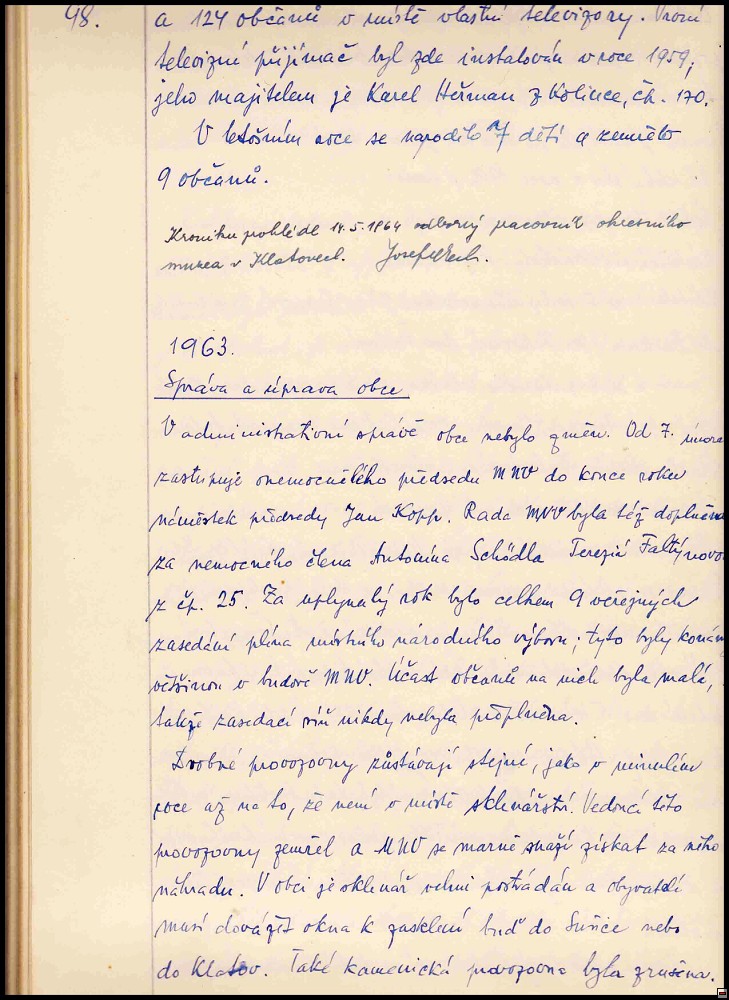 48.
a 124 občanů v místě vlastní televizory. První
televizní přijímač byl zde instalován v roce 1959;
jeho majitelem je Karel Heřman z Kolince, čp. 170.
V letošním roce se narodilo 7 dětí a zemřelo
9 občanů.
Kroniku prohlédl 14.5.1964 odborný pracovník okresního
muzea v Klatovech. Josef
1963.
Správa a úprava obce
V administrativní správě obce nebylo změn. Od 7. února
zastupuje onemocnělého předsedu MNV do konce roku
náměstek předsedy Jan Kopp. Rada MNV byla též doplněna
za nemocného člena Antonína Schödla Terezií Faltýnovou
z čp. 25. Za uplynulý rok bylo celkem 9 veřejných
zasedání pléna místního národního výboru; tyto byly konán
většinou v budově MNV. Účast občanů na nich byla malá,
takže zasedací síň nikdy nebyla přeplněna.
Drobné provozovny zůstávají stejné, jako v minulém
roce až na to, že není v místě sklenářství. Vedoucí této
provozovny zemřel a MNV se marně snaží získat za něho
náhradu. V obci je sklenář velmi postrádán a obyvatelé
musí dovážet okna k zasklení buď do Sušice nebo
do Klatov. Také kamenická provozovna byla zrušena.